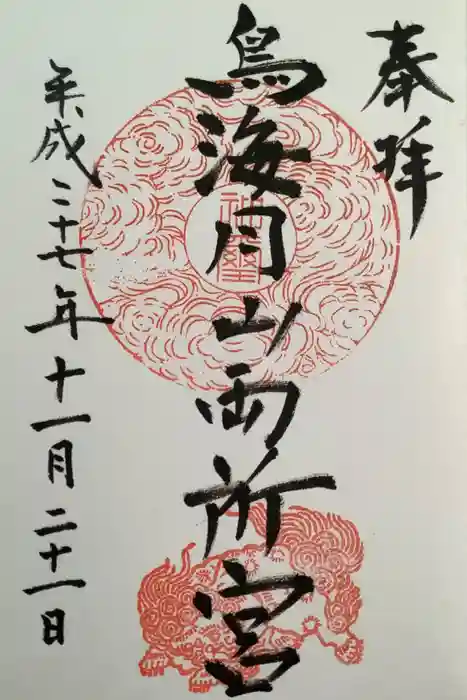 奉拝
鳥海月山両所宮
平成二十七年十一月二十一日